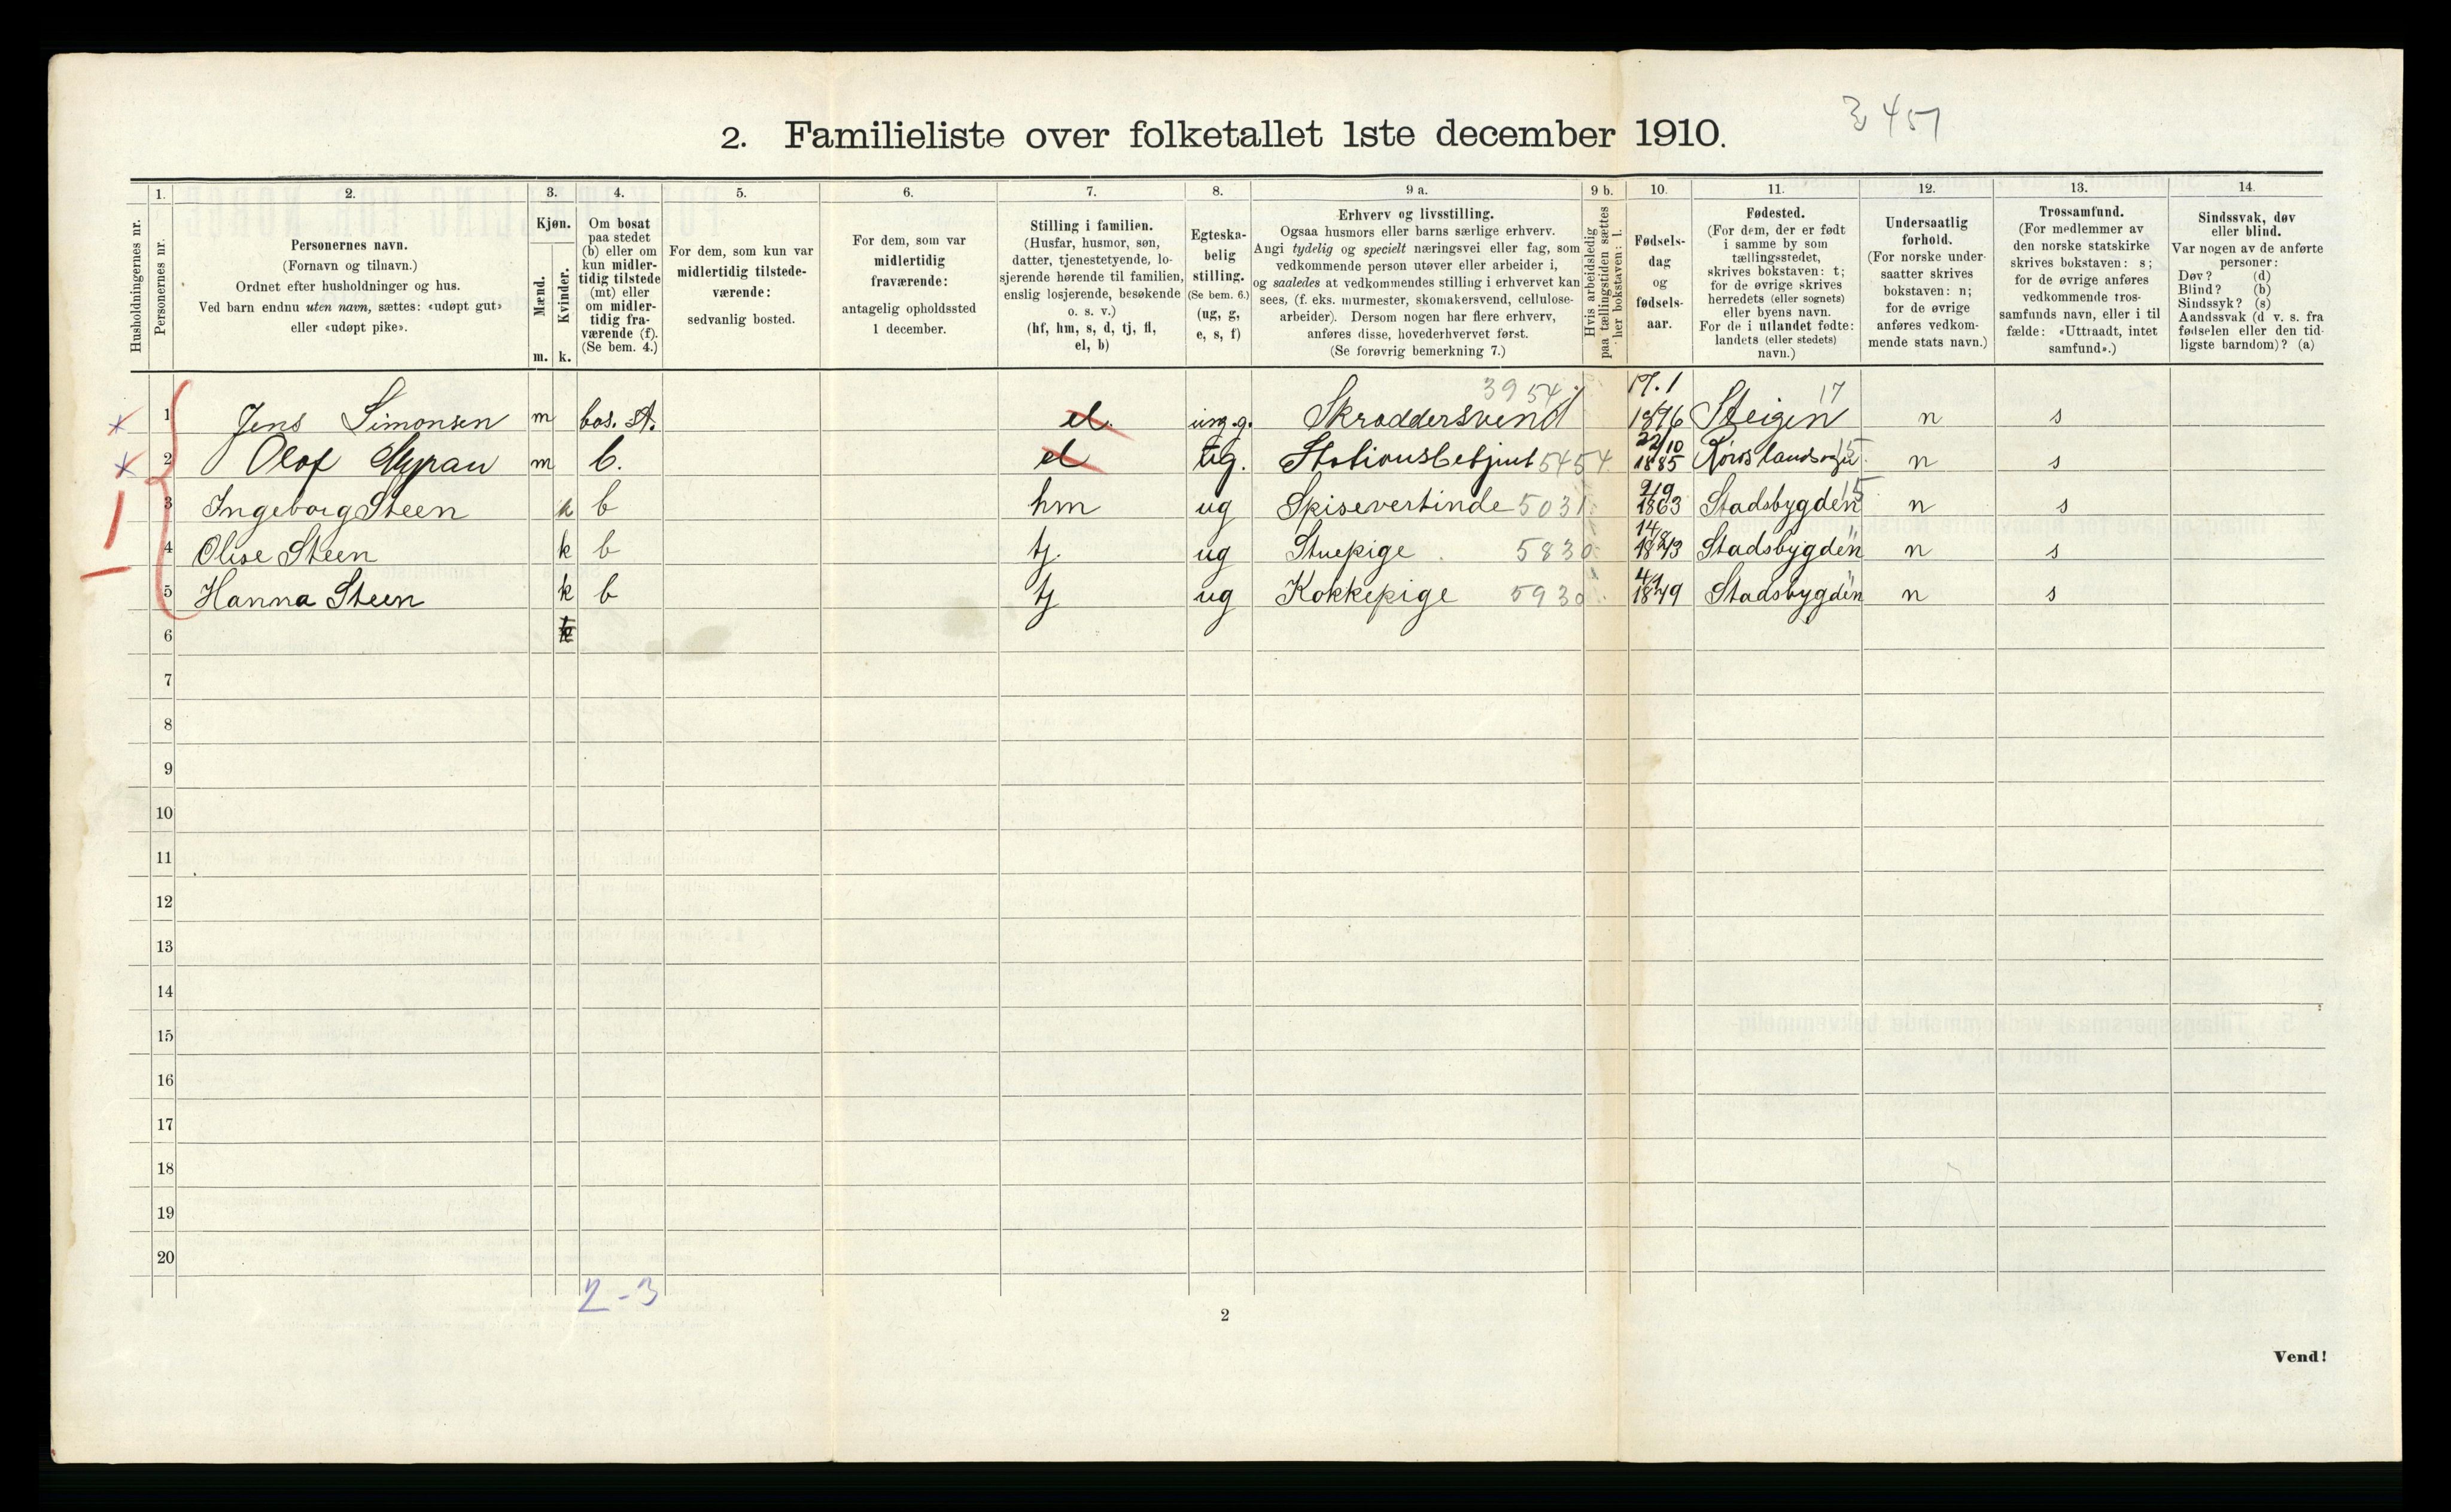 3451
2. Familieliste over folketallet 1ste december 1910.
Husholdningernes nr.
1. Personernes nr.
2. Personernes navn. (Fornavn og tilnavn.) Ordnet efter husholdninger og hus. Ved barn endnu uten navn, sættes: «udøpt gut» eller «udøpt pike».
3. Kjøn. Mænd. m. Kvinder. k.
4. Om bosat paa stedet (b) eller om kun midlertidig tilstede (mt) eller om midlertidig fraværende (f). (Se bem. 4.)
5. For dem, som kun var midlertidig tilstedeværende: sedvanlig bosted.
6. For dem, som var midlertidig fraværende: antagelig opholdssted 1 december.
7. Stilling i familien. (Husfar, husmor, søn, datter, tjenestetyende, losjerende hørende til familien, enslig losjerende, besøkende o. s. v.) (hf, hm, s, d, tj, fl, el, b)
8. Egteskabelig stilling. (Se bem. 6.) (ug, g, e, s, f)
9 a. Erhverv og livsstilling. Ogsaa husmors eller barns særlige erhverv. Angi tydelig og specielt næringsvei eller fag, som vedkommende person utøver eller arbeider i, og saaledes at vedkommendes stilling i erhvervet kan sees, (f. eks. murmester, skomakersvend, cellulosearbeider). Dersom nogen har flere erhverv, anføres disse, hovederhvervet først. (Se forøvrig bemerkning 7.)
9 b. Hvis arbeidsledig paa tællingstiden sættes her bokstaven: l.
10. Fødselsdag og fødselsaar.
11. Fødested. (For dem, der er født i samme by som tællingsstedet, skrives bokstaven: t; for de øvrige skrives herredets (eller sognets) eller byens navn. For de i utlandet fødte: landets (eller stedets) navn.)
12. Undersaatlig forhold. (For norske undersaatter skrives bokstaven: n; for de øvrige anføres vedkommende stats navn.)
13. Trossamfund. (For medlemmer av den norske statskirke skrives bokstaven: s; for de øvrige anføres vedkommende trossamfunds navn, eller i tilfælde: «Uttraadt, intet samfund».)
14. Sindssvak, døv eller blind. Var nogen av de anførte personer: Døv? (d) Blind? (b) Sindssyk? (s) Aandssvak (d v. s. fra fødselen eller den tidligste barndom)? (a)
1 Jens Simonsen m bos. st. el. ung.g. Skræddersvend 3954 17.1 1876 Steigen 17 n s
2 Olof Myran m b. el ug. Stationsbetjent 5454 22/10 1885 n s
3 Ingeborg Steen k b hm ug Spisevertinde 5031 9/9 1863 Stadsbygden 15 n s
4 Olise Steen k b tj. ug Stuepige 5830 14/8 1843 Stadsbygden " n s
5 Hanna Steen k b tj ug Kokkepige 5930 4/1 1849 Stadsbygden " n s
6
7
8
9
10
11
12
13
14
15
16
17
18
19
20
2-3
2
Vend!